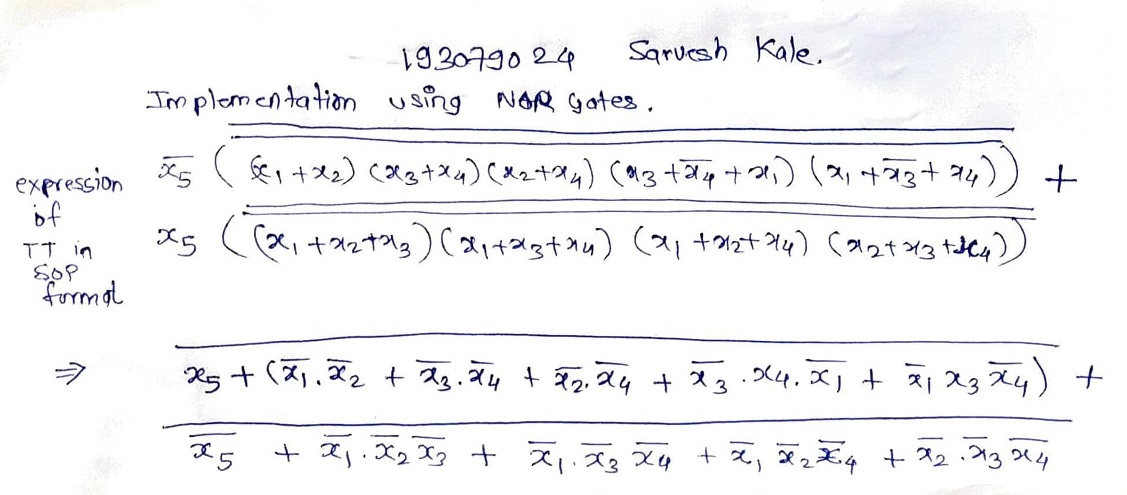 193079024 Sarvesh Kale.
Implementation using NOR gates.
expression of TT in SOP format
x̅₅ ( \overline{\overline{(x₁+x₂) (x₃+x₄) (x₂+x₄) (x₃+x̅₄+x₁) (x₁+x̅₃+x₄)}} ) +
x₅ ( \overline{\overline{(x₁+x₂+x₃) (x₁+x₃+x₄) (x₁+x₂+x₄) (x₂+x₃+x₄)}} )
⇒ \overline{x₅ + (x̅₁.x̅₂ + x̅₃.x̅₄ + x̅₂.x̅₄ + x̅₃.x₄.x̅₁ + x̅₁ x₃ x̅₄)} +
\overline{x̅₅ + x̅₁.x̅₂ x̅₃ + x̅₁.x̅₃ x̅₄ + x̅₁ x̅₂ x̅₄ + x̅₂.x̅₃ x̅₄}